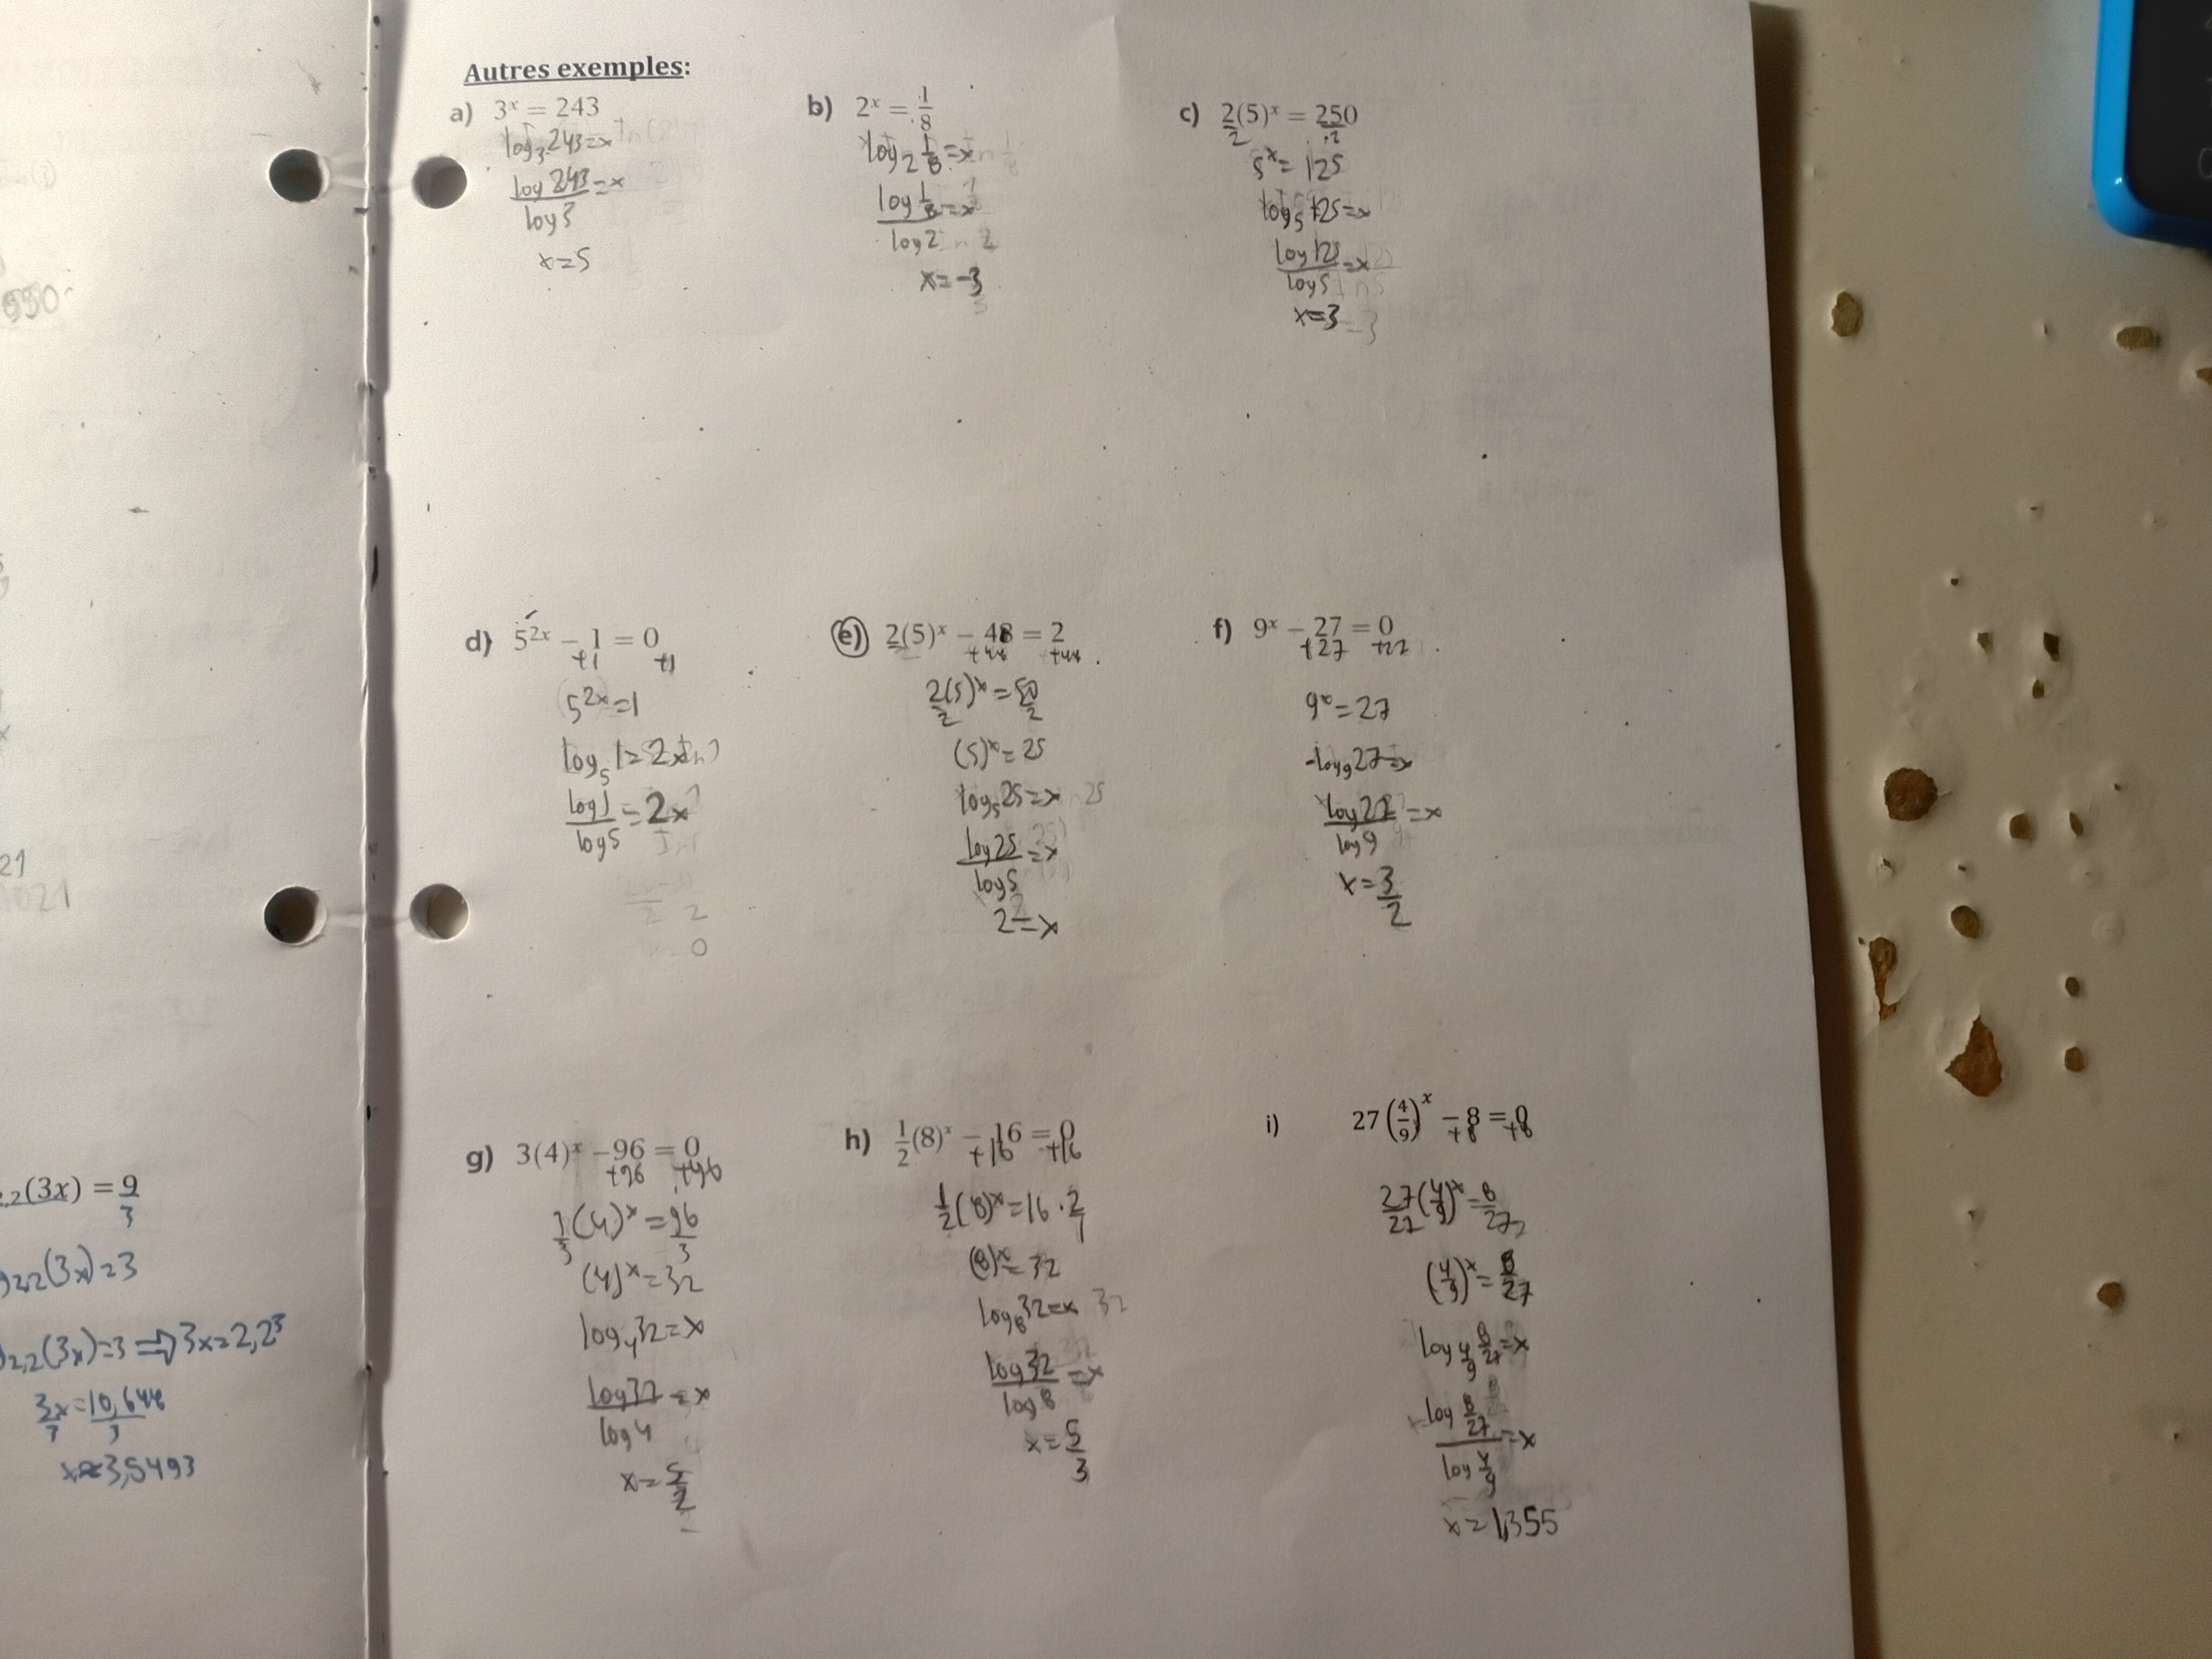 Autres exemples:
a) 3ˣ = 243
log₃243=x
log243/log3=x
x=5
b) 2ˣ = 1/8
log₂ 1/8=x
log 1/8/log2=x
x=-3
c) 2(5)ˣ = 250
2 ÷2
5ˣ=125
log₅125=x
log125/log5=x
x=3
d) 5²ˣ − 1 = 0
+1 +1
5²ˣ=1
log₅1=2x
log1/log5=2x
0
e) 2(5)ˣ − 48 = 2
+48 +48
2(5)ˣ/2=50/2
(5)ˣ=25
log₅25=x
log25/log5=x
2=x
f) 9ˣ − 27 = 0
+27 +27
9ˣ=27
log₉27=x
log27/log9=x
x=3/2
g) 3(4)ˣ −96 = 0
+96 +96
3/3(4)ˣ=96/3
(4)ˣ=32
log₄32=x
log32/log4=x
x=5/2
h) 1/2(8)ˣ − 16 = 0
+16 +16
1/2(8)ˣ=16·2/1
(8)ˣ=32
log₈32=x
log32/log8=x
x=5/3
i) 27(4/9)ˣ −8 = 0
+8 +8
27/27(4/9)ˣ=8/27
(4/9)ˣ=8/27
log 4/9 8/27=x
log 8/27/log 4/9=x
x=1,355
950
21
1021
2,2(3x) = 9/3
2,2(3x)=3
2,2(3x)=3 ⇒ 3x=2,2³
3x/3=10,648/3
x≈3,5493